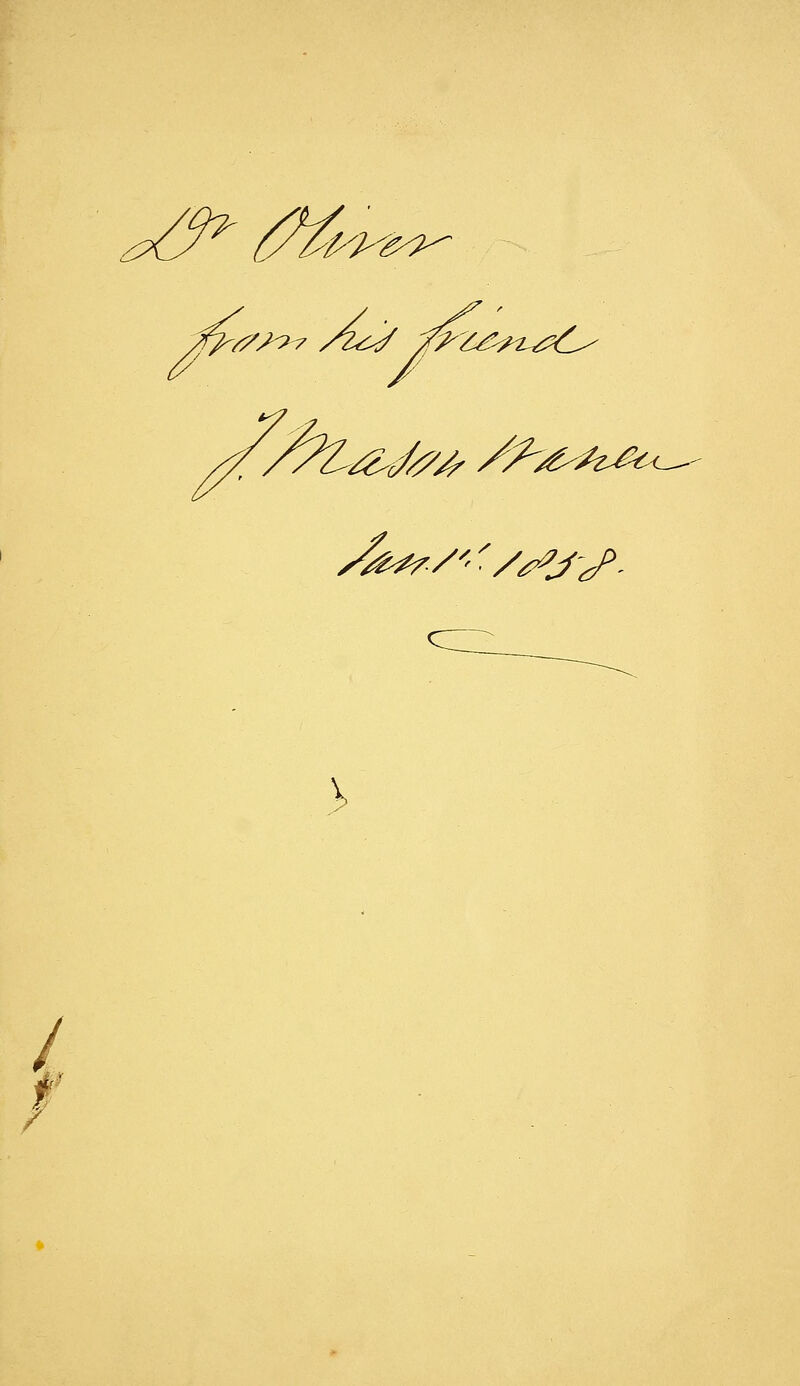 Dr Oliver
from his friend
J. Mason Warren
Jan. 1st. 1858.